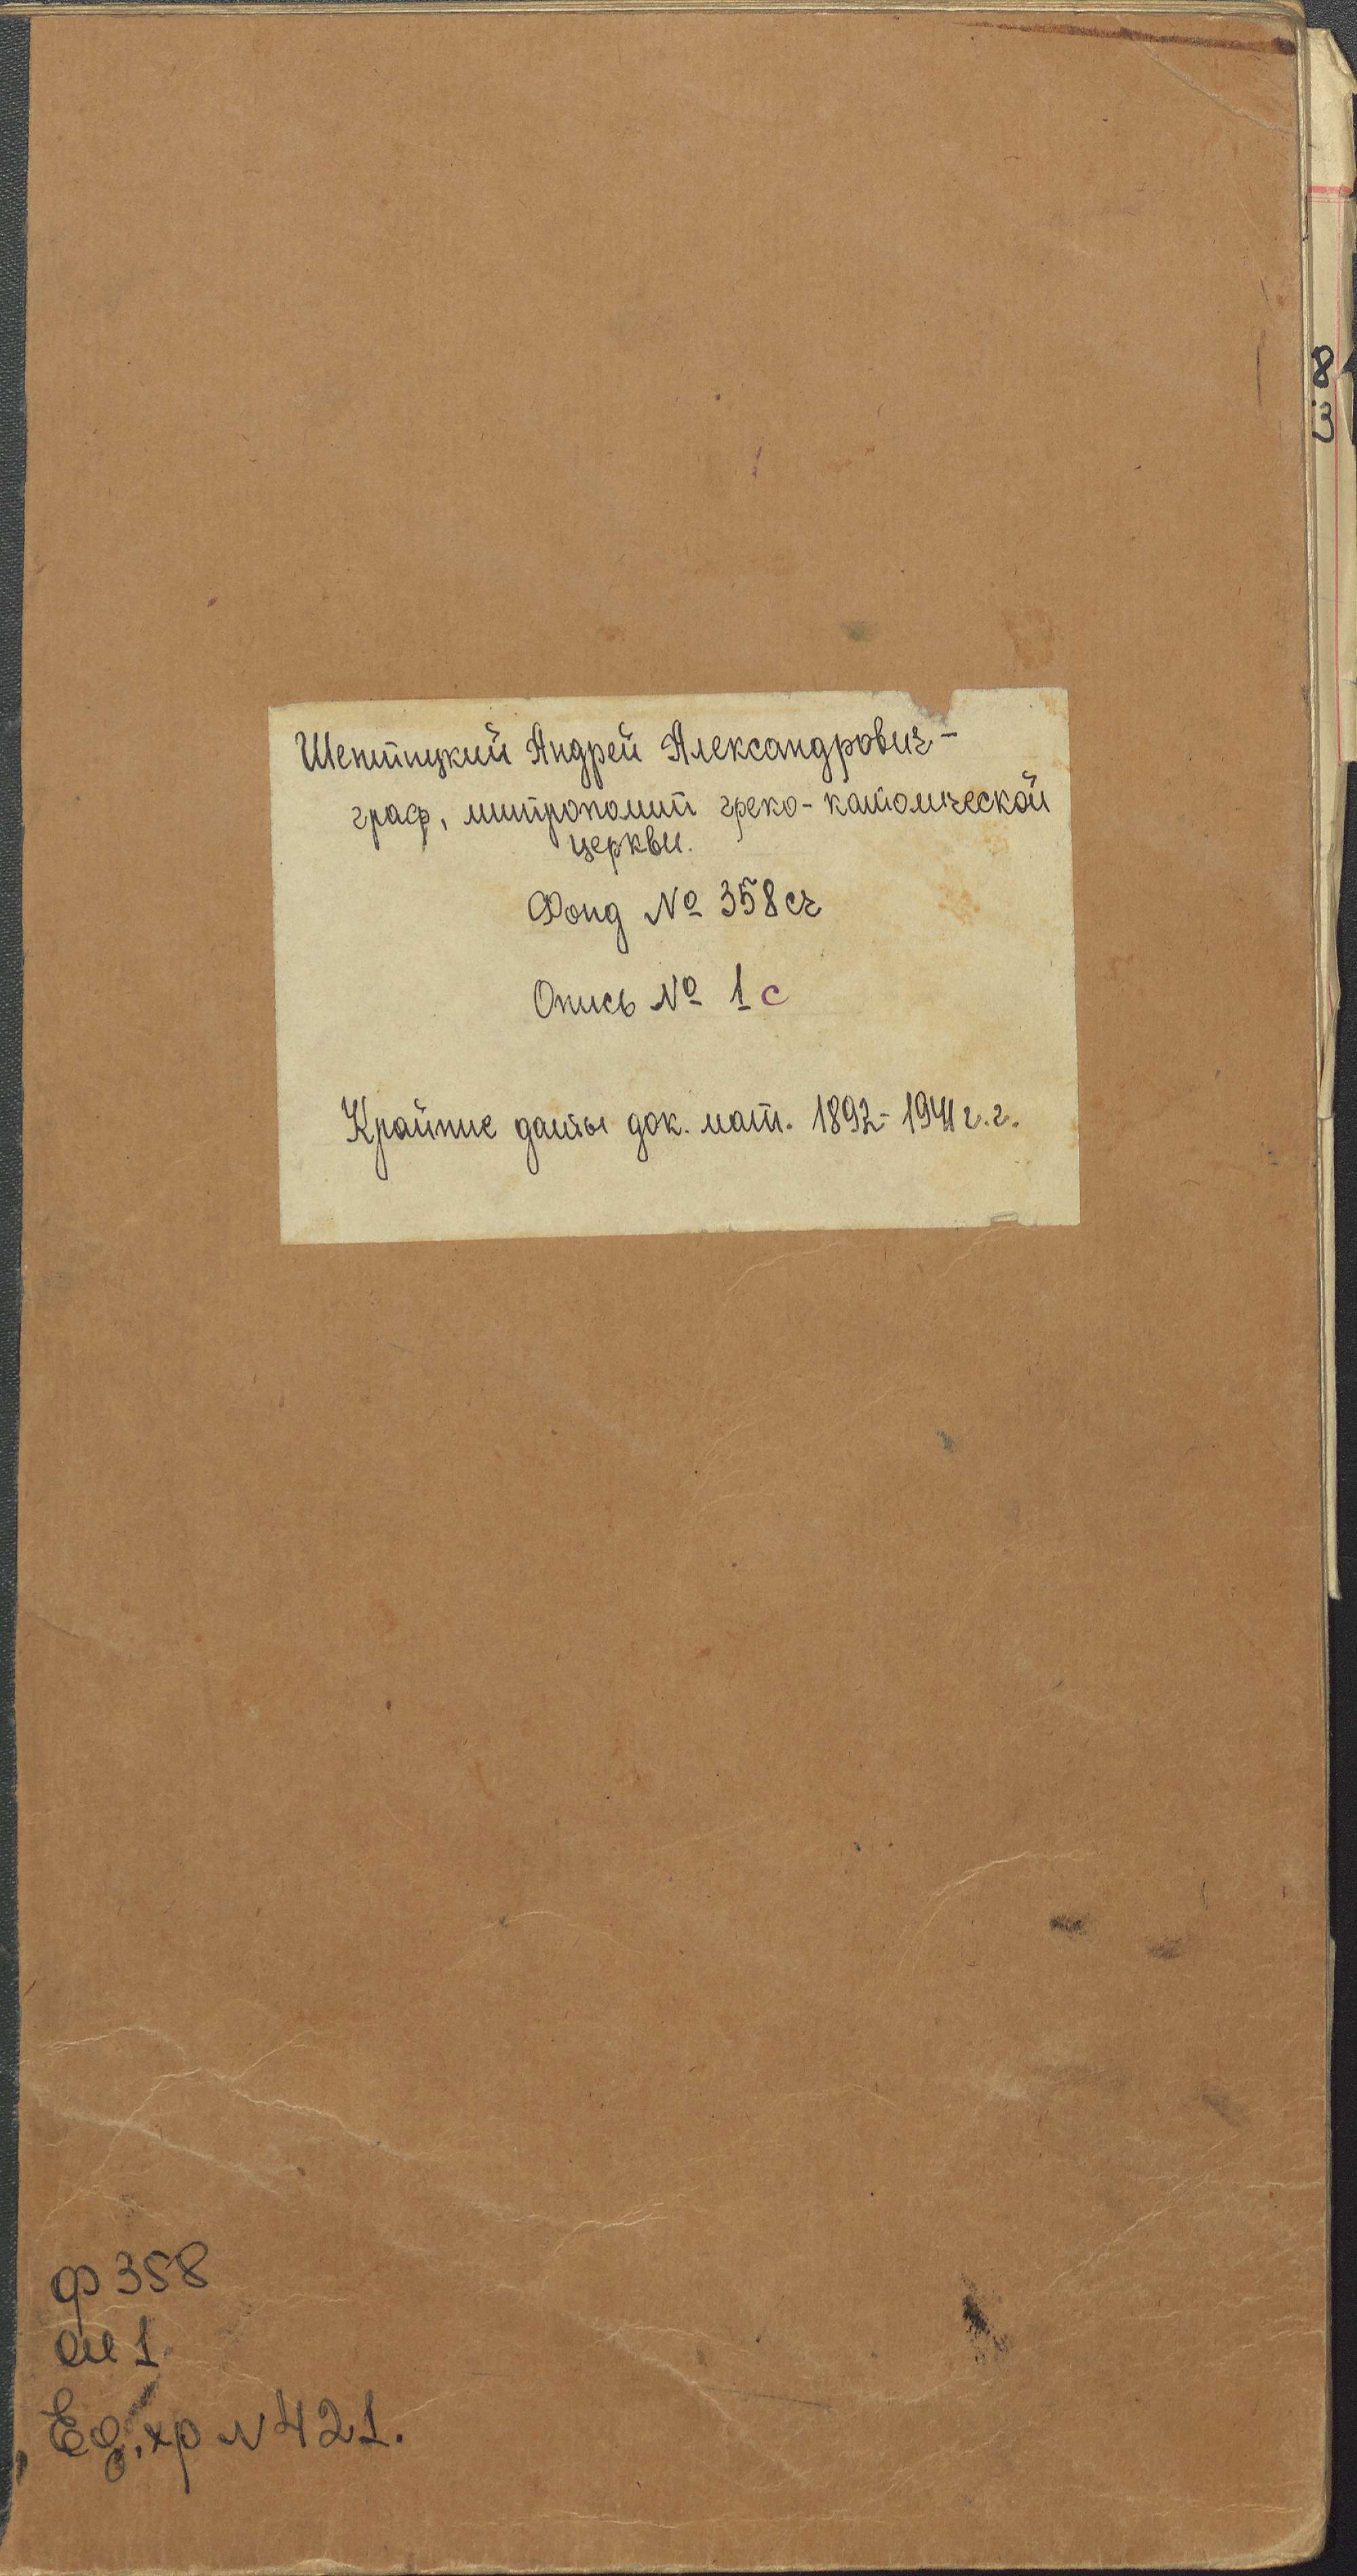 Шептицкий Андрей Александрович-
граф, митрополит греко-католической
церкви.
Фонд № 358сч
Опись № 1с
Крайние даты док. мат. 1892-1941 г.г.
ф 358
оп 1
Ед. хр N 421.
8
3